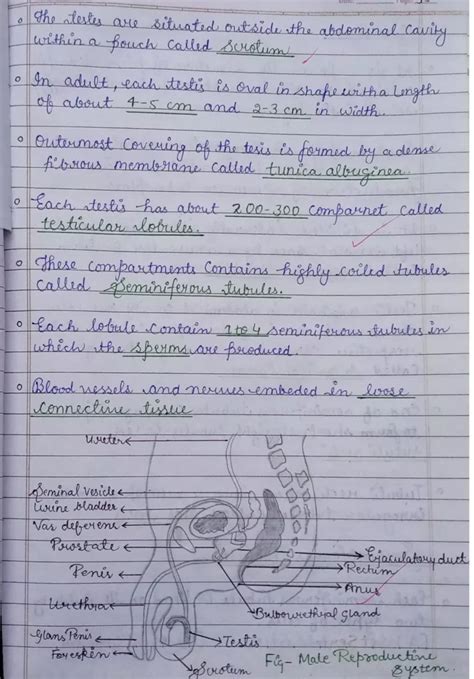 The testes are situated outside the abdominal cavity
within a pouch called scrotum.
In adult, each testis is oval in shape with a length
of about 4-5 cm and 2-3 cm in width.
Outermost covering of the tesis is formed by a dense
fibrous membrane called tunica albuginea.
Each testis has about 200-300 comparnet called
testicular lobules.
These compartments contains highly coiled tubules
called Seminiferous tubules.
Each lobule contain 1 to 4 seminiferous tubules in
which the sperms are produced.
Blood vessels and nerves embeded in loose
connective tissue
Ureter
Seminal vesicle
Urine bladder
Vas deferens
Prostate
Ejaculatory duct
Rectum
Penis
Anus
Urethra
Bulbourethral gland
Glans Penis
Testis
Foreskin
Scrotum
Fig- Male Reproductive
System.